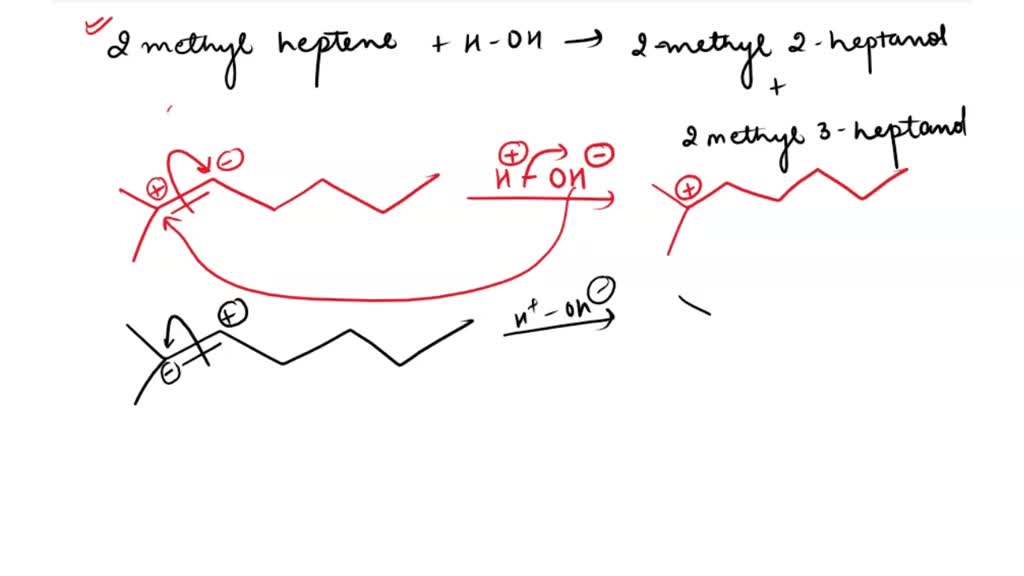 2 methyl heptene + H-OH → 2-methyl 2-heptanol
+
2 methyl 3-heptanol
⊕ ⊖
H OH
⊕ ⊖
⊕
⊕ ⊖
H⁺ - OH⊖